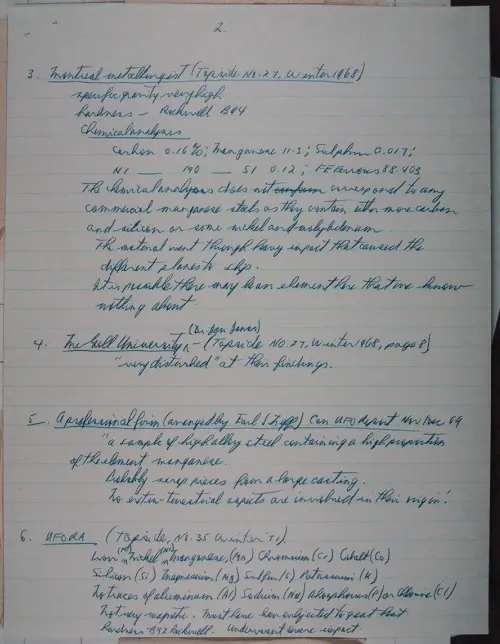 2.
3. Montreal metallurgist (Topside No. 27, Winter 1968)
specific gravity very high
hardness - Rockwell B94
Chemical analysis
Carbon 0.16%; Manganese 11.3; Sulphur 0.017;
Ni __ MO __ SI 0.12; FE Ferrous 88.403
The chemical analysis does not conform correspond to any
commercial manganese steels as they contain either more carbon
and silicon or some nickel and molybdenum.
The material went through heavy impact that caused the
different planes to slip.
It is possible there may be an element here that we know
nothing about.
(Dr. Jonas)
4. McGill University - (Topside NO. 27, Winter 1968, page 8)
"very disturbed" at their findings.
5. A professional firm (arranged by Earl J. ) Can UFO Report Nov Dec 69
"a sample of high alloy steel containing a high proportion
of the element manganese.
Probably scrap pieces from a large casting.
No extra-terrestrial aspects are involved in their origin".
6. UFORA (Topside, No. 35 Winter '71)
Iron (Fe) Nickel (Ni) Manganese, (Mn) Chromium (Cr) Cobalt (Co)
Silicon (Si) Magnesium (Mg) Sulfur (S) Potassium (K)
No traces of aluminum (Al) Sodium (Na) Phosphorus (P) or Chlorine (Cl)
Not very magnetic. Must have been subjected to great heat
hardness B92 Rockwell. Underwent severe impact